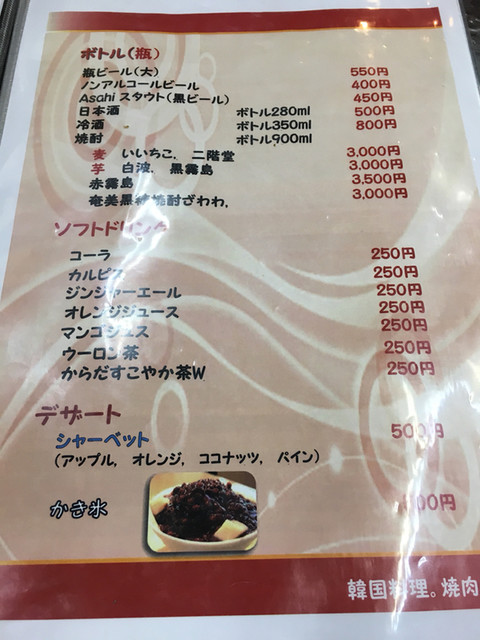 ボトル(瓶)
瓶ビール(大) 550円
ノンアルコールビール 400円
Asahi スタウト(黒ビール) 450円
日本酒 ボトル280ml 500円
冷酒 ボトル350ml 800円
焼酎 ボトル900ml
麦 いいちこ、二階堂 3,000円
芋 白波、黒霧島 3,000円
赤霧島 3,500円
奄美黒糖焼酎ざわわ、 3,000円
ソフトドリンク
コーラ 250円
カルピス 250円
ジンジャーエール 250円
オレンジジュース 250円
マンゴジュース 250円
ウーロン茶 250円
からだすこやか茶W 250円
デザート
シャーベット 500円
(アップル, オレンジ, ココナッツ, パイン)
かき氷 00円
韓国料理。焼肉